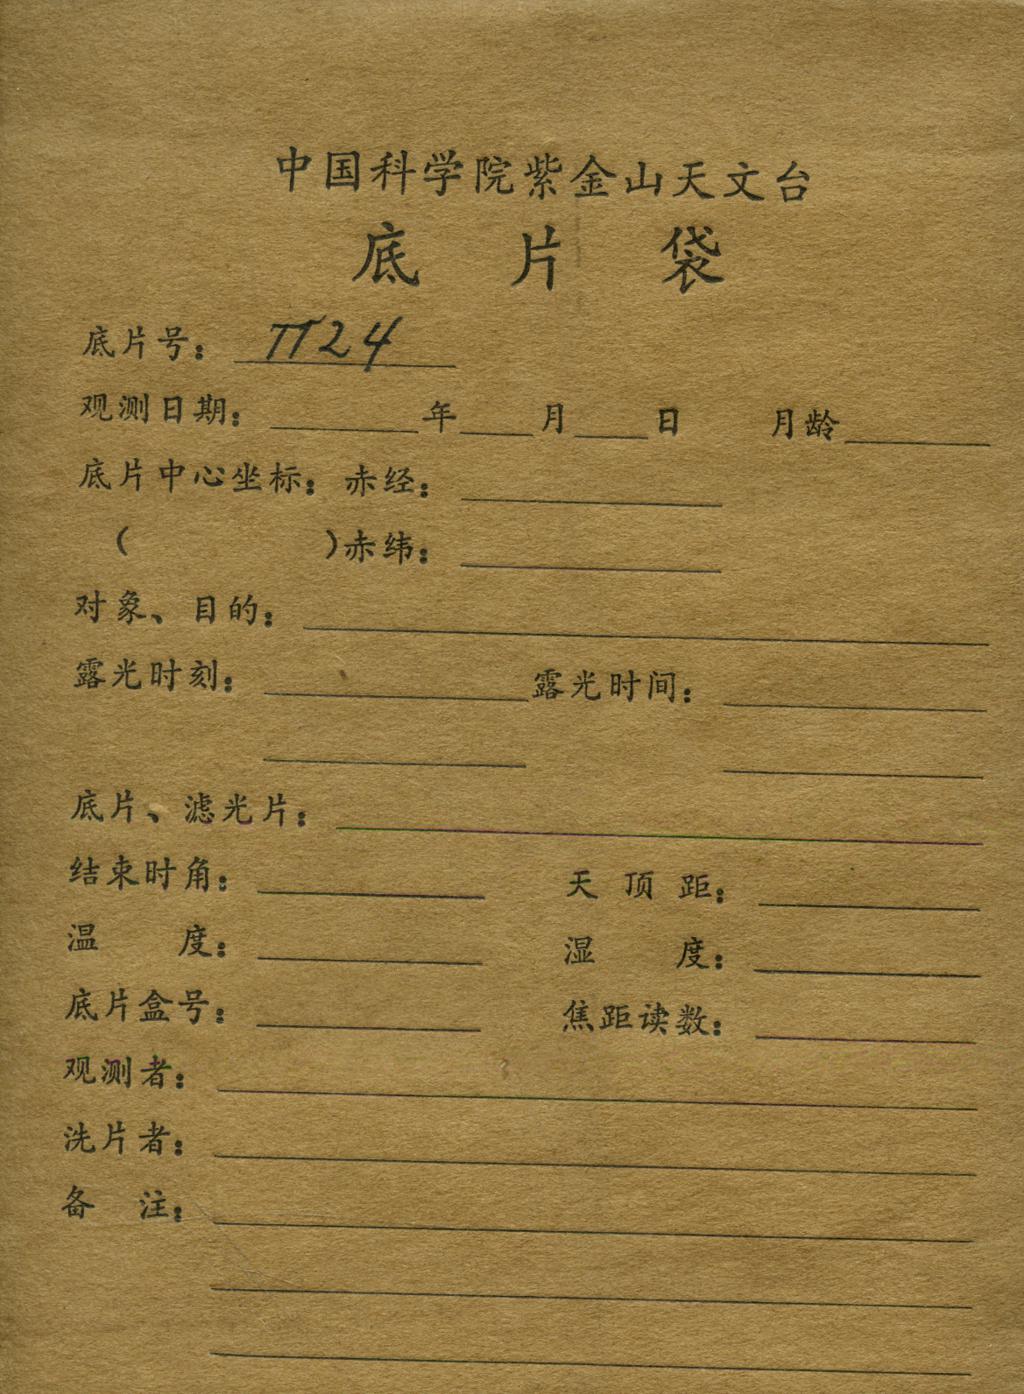 中国科学院紫金山天文台
底片袋
底片号： TT24
观测日期： 年 月 日 月龄
底片中心坐标：赤经：
（ ）赤纬：
对象、目的：
露光时刻： 露光时间：
底片、滤光片：
结束时角： 天顶距：
温度： 湿度：
底片盒号： 焦距读数：
观测者：
洗片者：
备注：